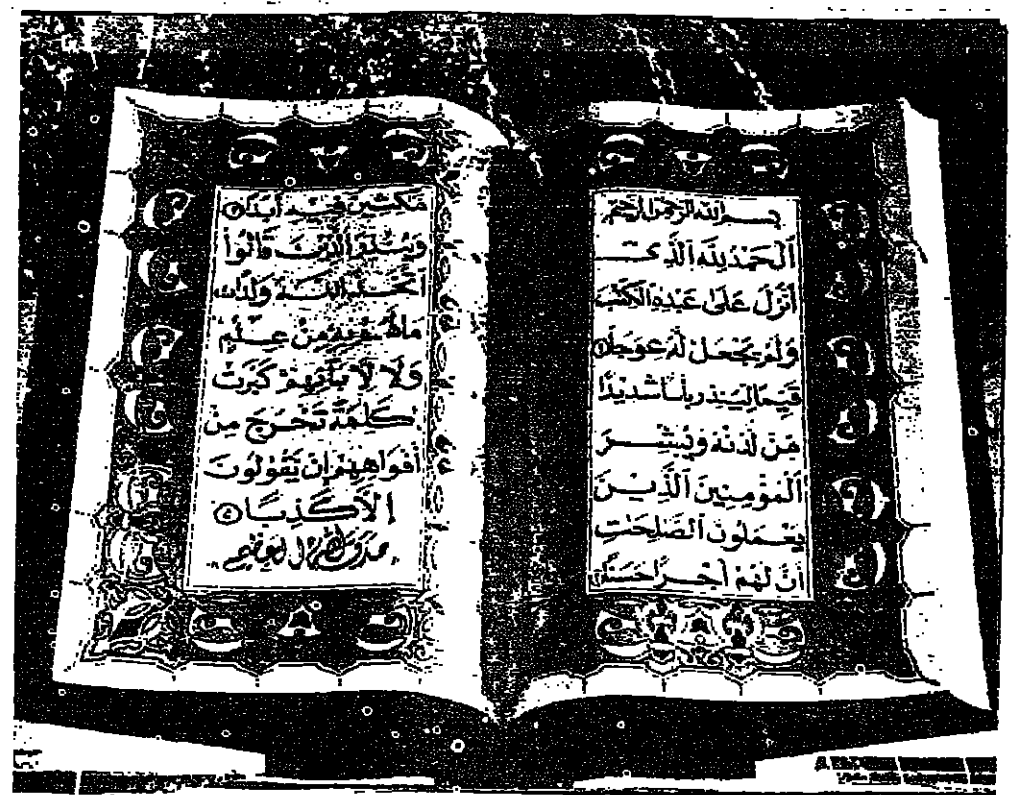 بسم الله الرحمن الرحيم
ٱلْحَمْدُ لِلَّهِ ٱلَّذِى
أَنْزَلَ عَلَىٰ عَبْدِهِ ٱلْكِتَٰبَ
وَلَمْ يَجْعَلْ لَهُ عِوَجًا ١
قَيِّمًا لِيُنْذِرَ بَأْسًا شَدِيْدًا
مِنْ لَدُنْهُ وَيُبَشِّرَ
ٱلْمُؤْمِنِيْنَ ٱلَّذِيْنَ
يَعْمَلُونَ ٱلصَّٰلِحَٰتِ
أَنَّ لَهُمْ أَجْرًا حَسَنًا ٢
مَٰكِثِيْنَ فِيْهِ أَبَدًا ٣
وَيُنْذِرَ ٱلَّذِيْنَ قَالُوا
ٱتَّخَذَ ٱللَّهُ وَلَدًا
مَا لَهُمْ بِهِ مِنْ عِلْمٍ
وَلَا لِأٓبَائِهِمْ كَبُرَتْ
كَلِمَةً تَخْرُجُ مِنْ
أَفْوَاهِهِمْ إِنْ يَقُوْلُونَ
إِلَّا كَذِبًا
صدق الله العظيم